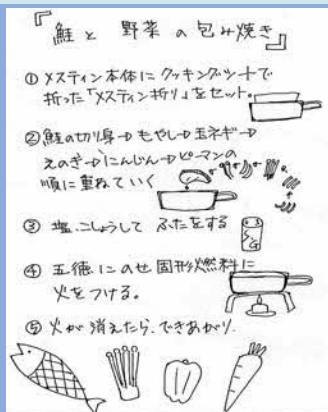 『鮭と 野菜の包み焼き』
① メスティン本体にクッキングシートで
折った「メスティン折り」をセット。
② 鮭の切り身→もやし→玉ネギ→
えのき→にんじん→ピーマンの
順に重ねていく
③ 塩、こしょうして ふたをする
④ 五徳にのせ固形燃料に
火をつける。
⑤ 火が消えたら、できあがり。